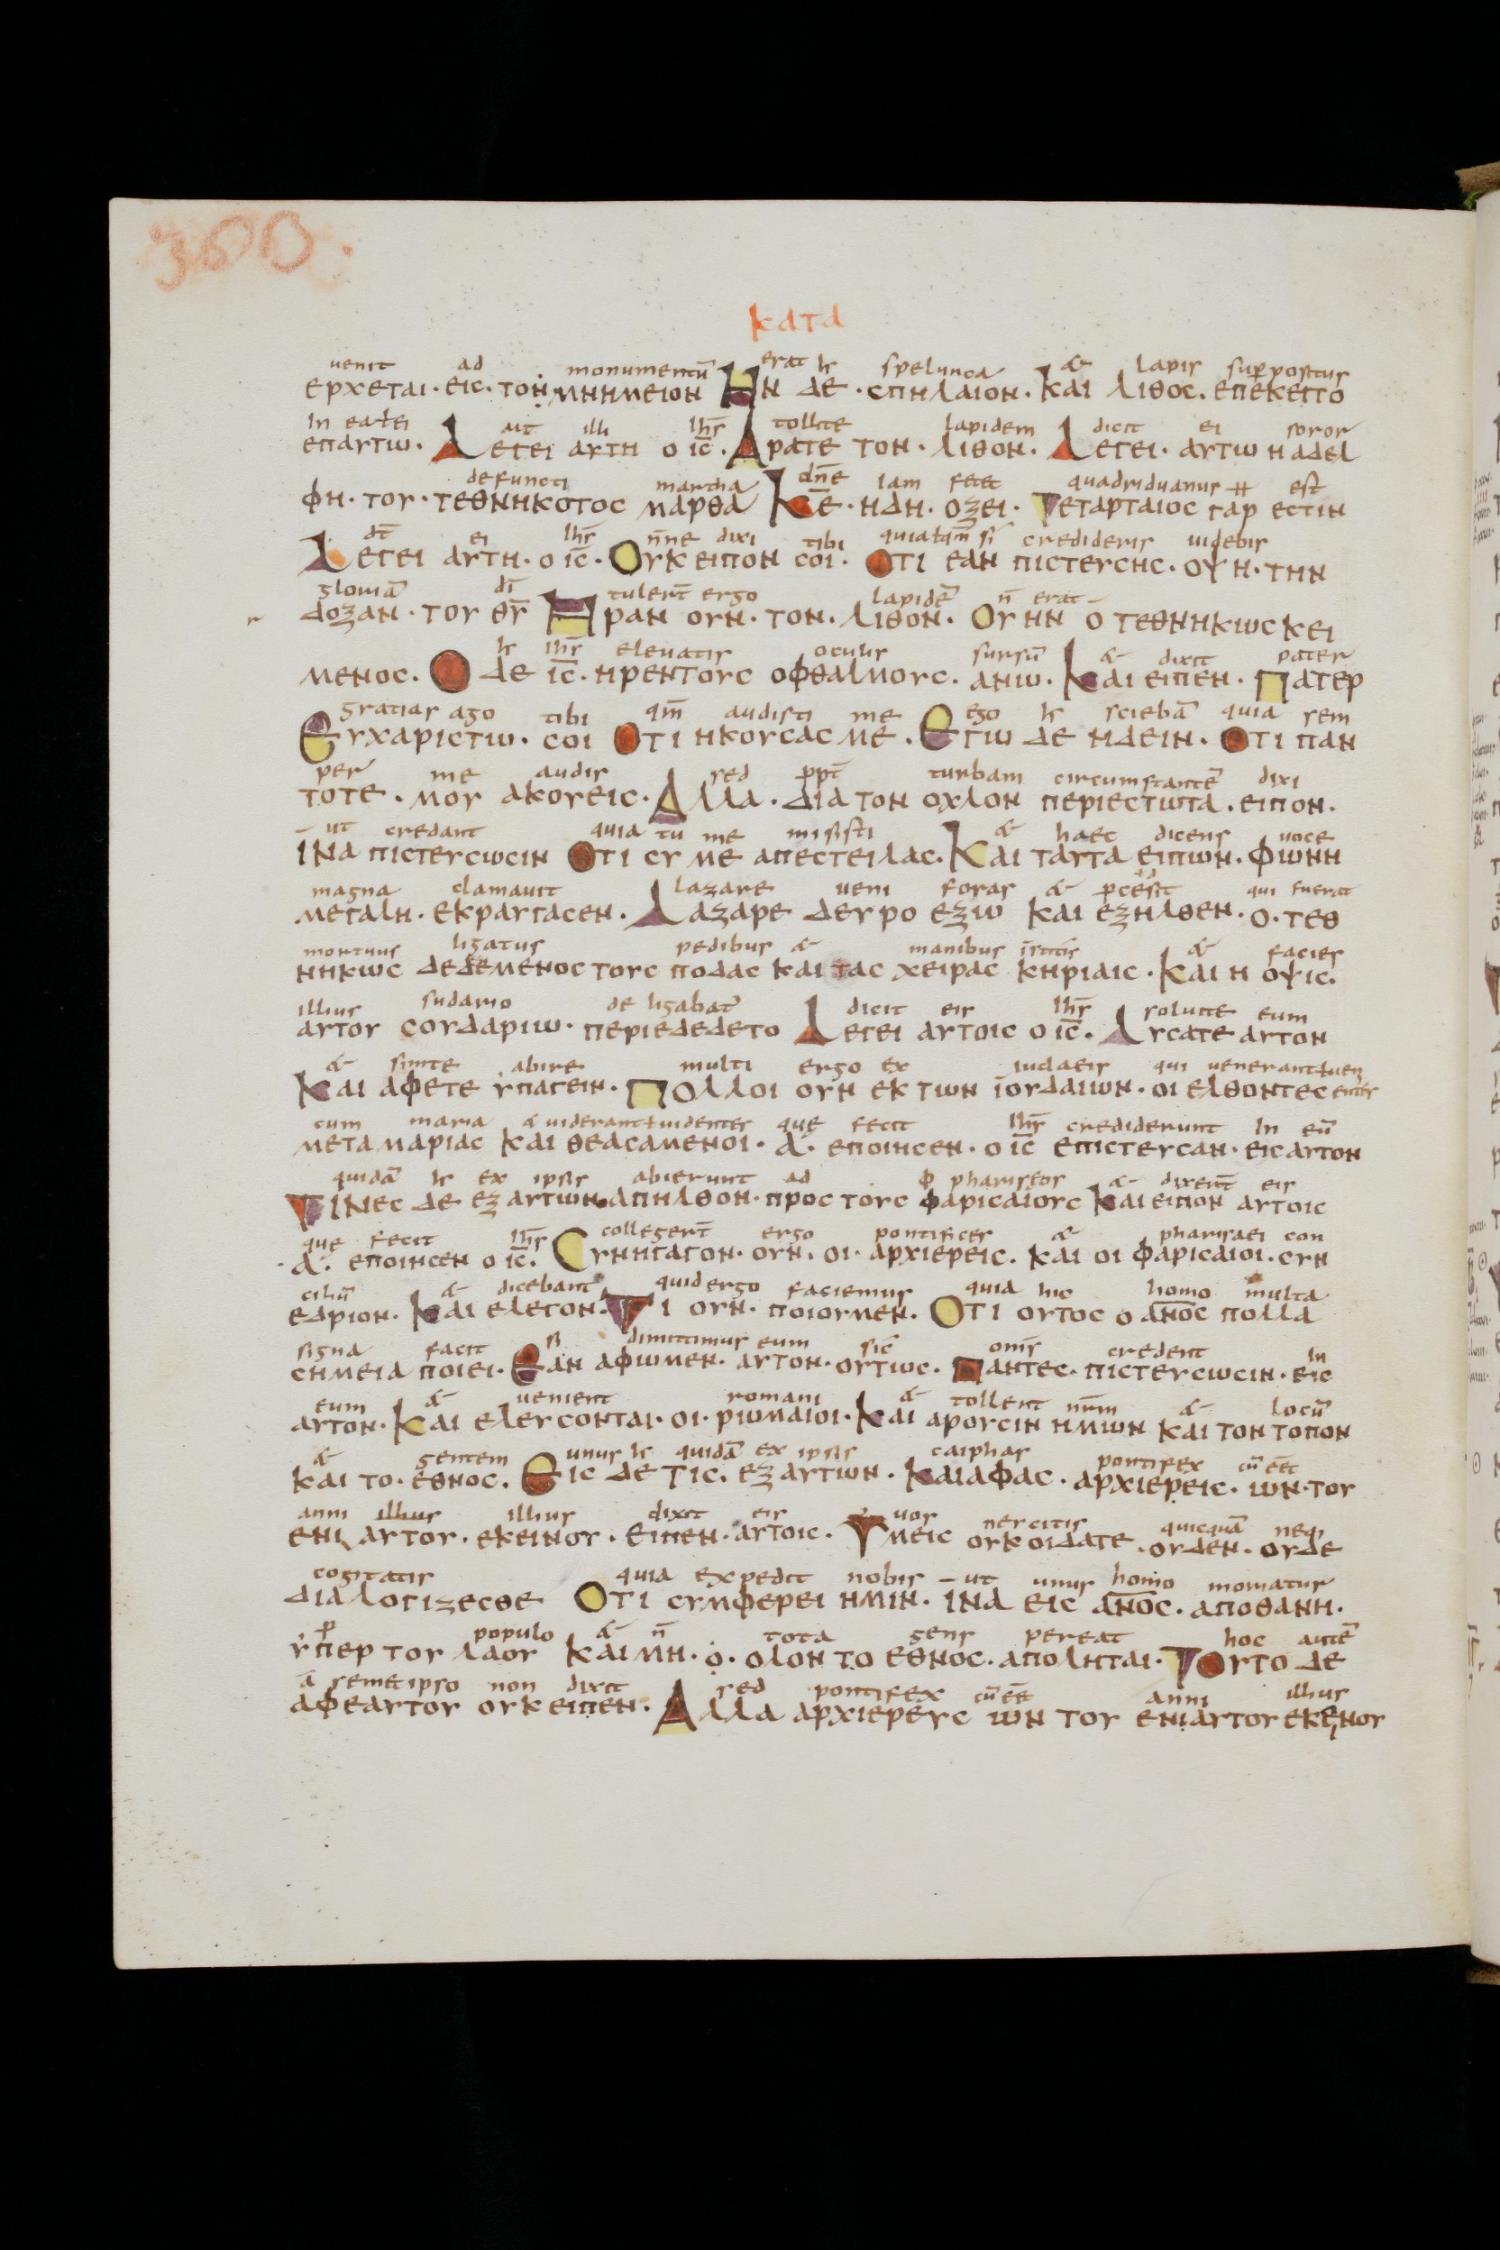 360.
κατα
uenit ad monumentū erat hͬ spelunca & lapis suppositus
ερχεται· εις· τον· μνημειον Ην δε· σπηλαιον· Και λιθος· επεκειτο
In ea ł ei ait illi ihs̄ tollite lapidem dicit ei soror
επαυτω· Λεγει αυτη ο ις̄· Αρατε τον· λιθον· Λεγει· αυτω η αδελ
defuncti martha dn̄e iam fetet quadriduanus est
φη· του· τεθνηκοτος μαρθα Κε̄· ηδη· οζει· Τεταρταιος γαρ εστιν
dt̄ ei ihs̄ n̄ne dixi tibi credideris uidebis
Λεγει αυτη· ο ις̄· Ουκ ειπον σοι· Οτι εαν πιστευσης· οψη· την
gloriā dī tulert̄ ergo lapidē n̄ erat
δοξαν· του θῡ Ηραν ουν· τον· λιθον· Ου ην ο τεθνηκως κει
hͬ ihs̄ eleuatis oculis sursū & dixit pater
μενος· Ο δε ις̄· ηρεν τους οφθαλμους· ανω· Και ειπεν· Πατερ
gratias ago tibi qm̄ audisti me ego hͬ sciebā quia sem
Ευχαριστω· σοι Οτι ηκουσας με· Εγω δε ηδειν· Οτι παν
per me audis sed ppt̄ turbam circumstantē dixi
τοτε· μου ακουεις· Αλλα· δια τον οχλον περιεστωτα· ειπον·
ut credant quia tu me misisti & haec dicens uoce
ινα πιστευσωσιν Οτι συ με απεστειλας· Και ταυτα ειπων· φωνη
magna clamauit lazare ueni foras & qui fuerat
μεγαλη· εκραυγασεν· Λαζαρε δευρο εξω και εξηλθεν· ο· τεθ
mortuus ligatus pedibus & manibus & facies
νηκως δεδεμενος τους ποδας και τας χειρας κηριαις· Και η οψις·
illius sudario de ligabat̄ dicit eis ihs̄ soluite eum
αυτου σουδαριω· περιεδεδετο Λεγει αυτοις ο ις̄· Λυσατε αυτον
& sinite abire multi ergo ex iudaeis qui uenerant ł uen
Και αφετε υπαγειν· Πολλοι ουν εκ των ιουδαιων· οι ελθοντες
cum maria & uiderant ł uidentes que fecit ihs̄ crediderunt In eū
μετα μαριας και θεασαμενοι· α· εποιησεν· ο ις̄ επιστευσαν· εις αυτον
quidā hͬ ex ipsis abierunt ad φ phariseos & dixert̄ eis
Τινες δε εξ αυτων απηλθον· προς τους φαρισαιους Και ειπον αυτοις
que fecit ihs̄ collegert̄ ergo pontifices & pharisaei con
α· εποιησεν ο ις̄· Συνηγαγον· ουν· οι· αρχιερεις· και οι φαρισαιοι· συν
ciliū & dicebant quid ergo faciemus quia hic homo multa
εδριον· Και ελεγον· Τι ουν· ποιουμεν· Οτι ουτος ο ανο̄ς πολλα
signa facit si dimittimus eum sic omīs credent in
σημεια ποιει· Εαν αφωμεν· αυτον· ουτως· Παντες· πιστευσωσιν· εις
eum & uenient romani & tollent nr̄m & locū
αυτον· Και ελευσονται· οι· ρωμαιοι· Και αρουσιν ημων και τον τοπον
& gentem unus hͬ quidā ex ipsis caiphas pontifex cū eēt
και το· εθνος· Εις δε τις· εξ αυτων· Καιαφας· αρχιερεις· ων· του
anni illius illius dixit eis uos nescitis quicquā neq,
ενι αυτου· εκεινου· Ειπεν· αυτοις· Υμεις ουκ οιδατε· ουδεν· ουδε
cogitatis quia expedit nobis ut unus homo moriatur
διαλογιζεσθε Οτι συμφερει ημιν· ινα εις ανο̄ς· αποθανη·
p populo & n̄ tota gens pereat hoc autē
υπερ του λαου Και μη· ο· ολον το εθνος· απολητai· Τουτο δε
ā semetipso non dixit sed pontifex cū eēt anni illius
αφεαυτου ουκ ειπεν· Αλλα αρχιερευς ων του ενιαυτου εκεινου